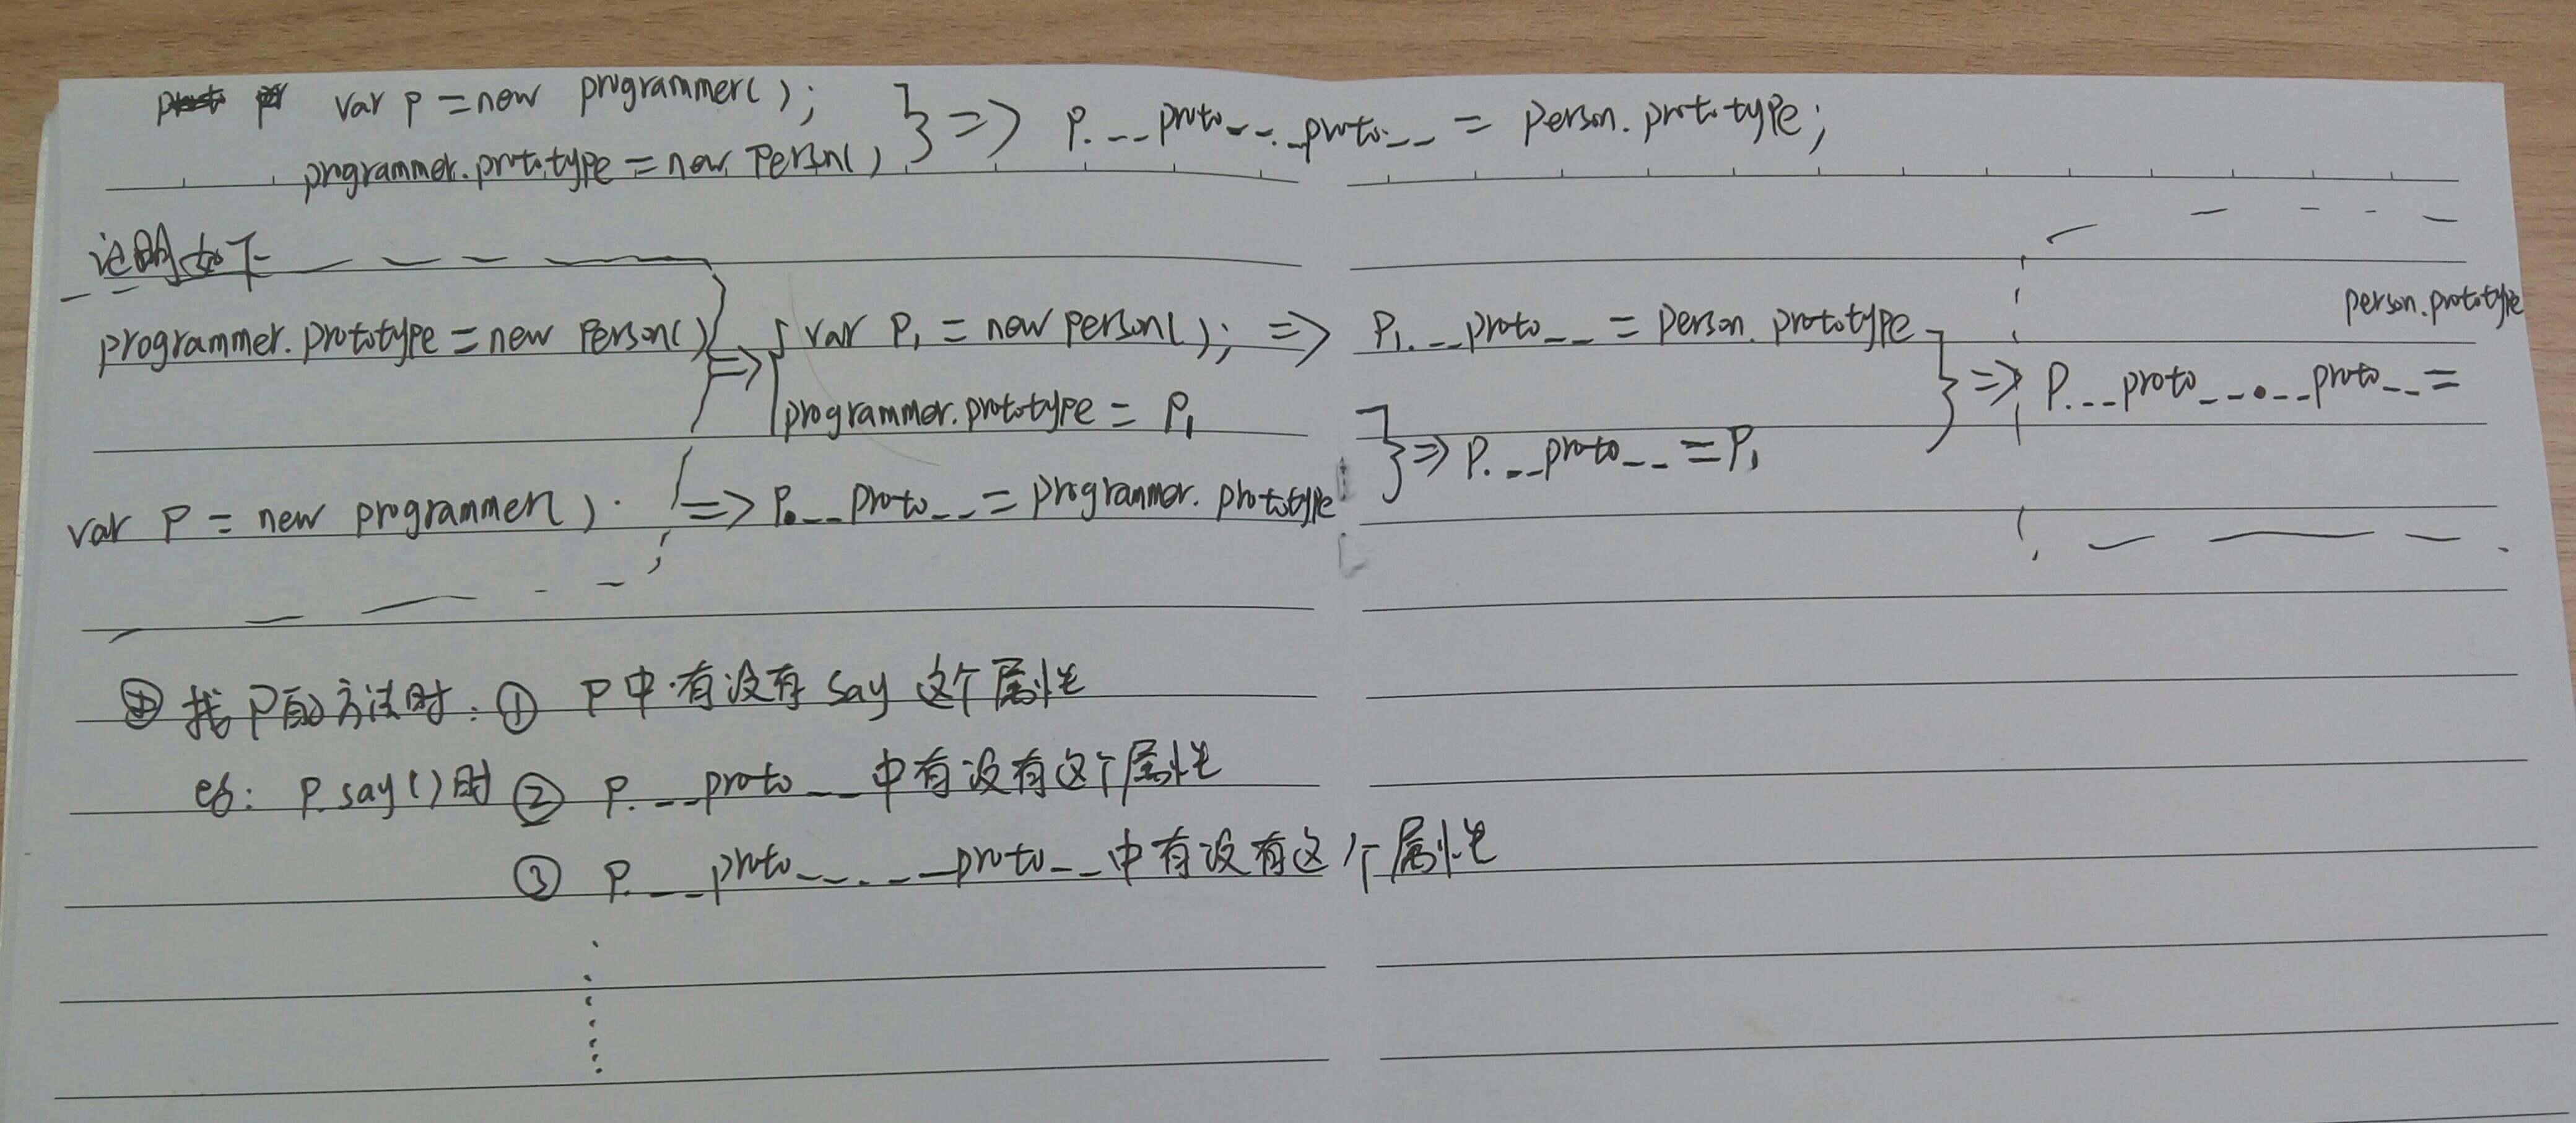 var p = new programmer();
programmer.prototype = new Person()
} => p.__proto__.__proto__ = person.prototype;
证明如下
programmer.prototype = new Person()
=> { var P1 = new person(); => P1.__proto__ = person.prototype
person.prototype
programmer.prototype = P1
} => P.__proto__ = P1
} => P.__proto__.__proto__ =
var P = new programmer().
=> P.__proto__ = programmer.prototype
找P的方法时: ① P中有没有say这个属性
eg: p.say()时 ② P.__proto__中有没有这个属性
③ P.__proto__.__proto__中有没有这个属性